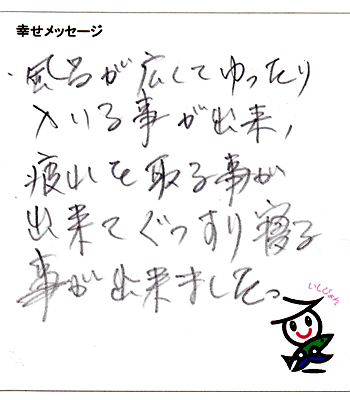 幸せメッセージ
風呂が広くてゆったり
入いる事が出来,
疲れを取る事が
出来てぐっすり寝る
事が出来ました。